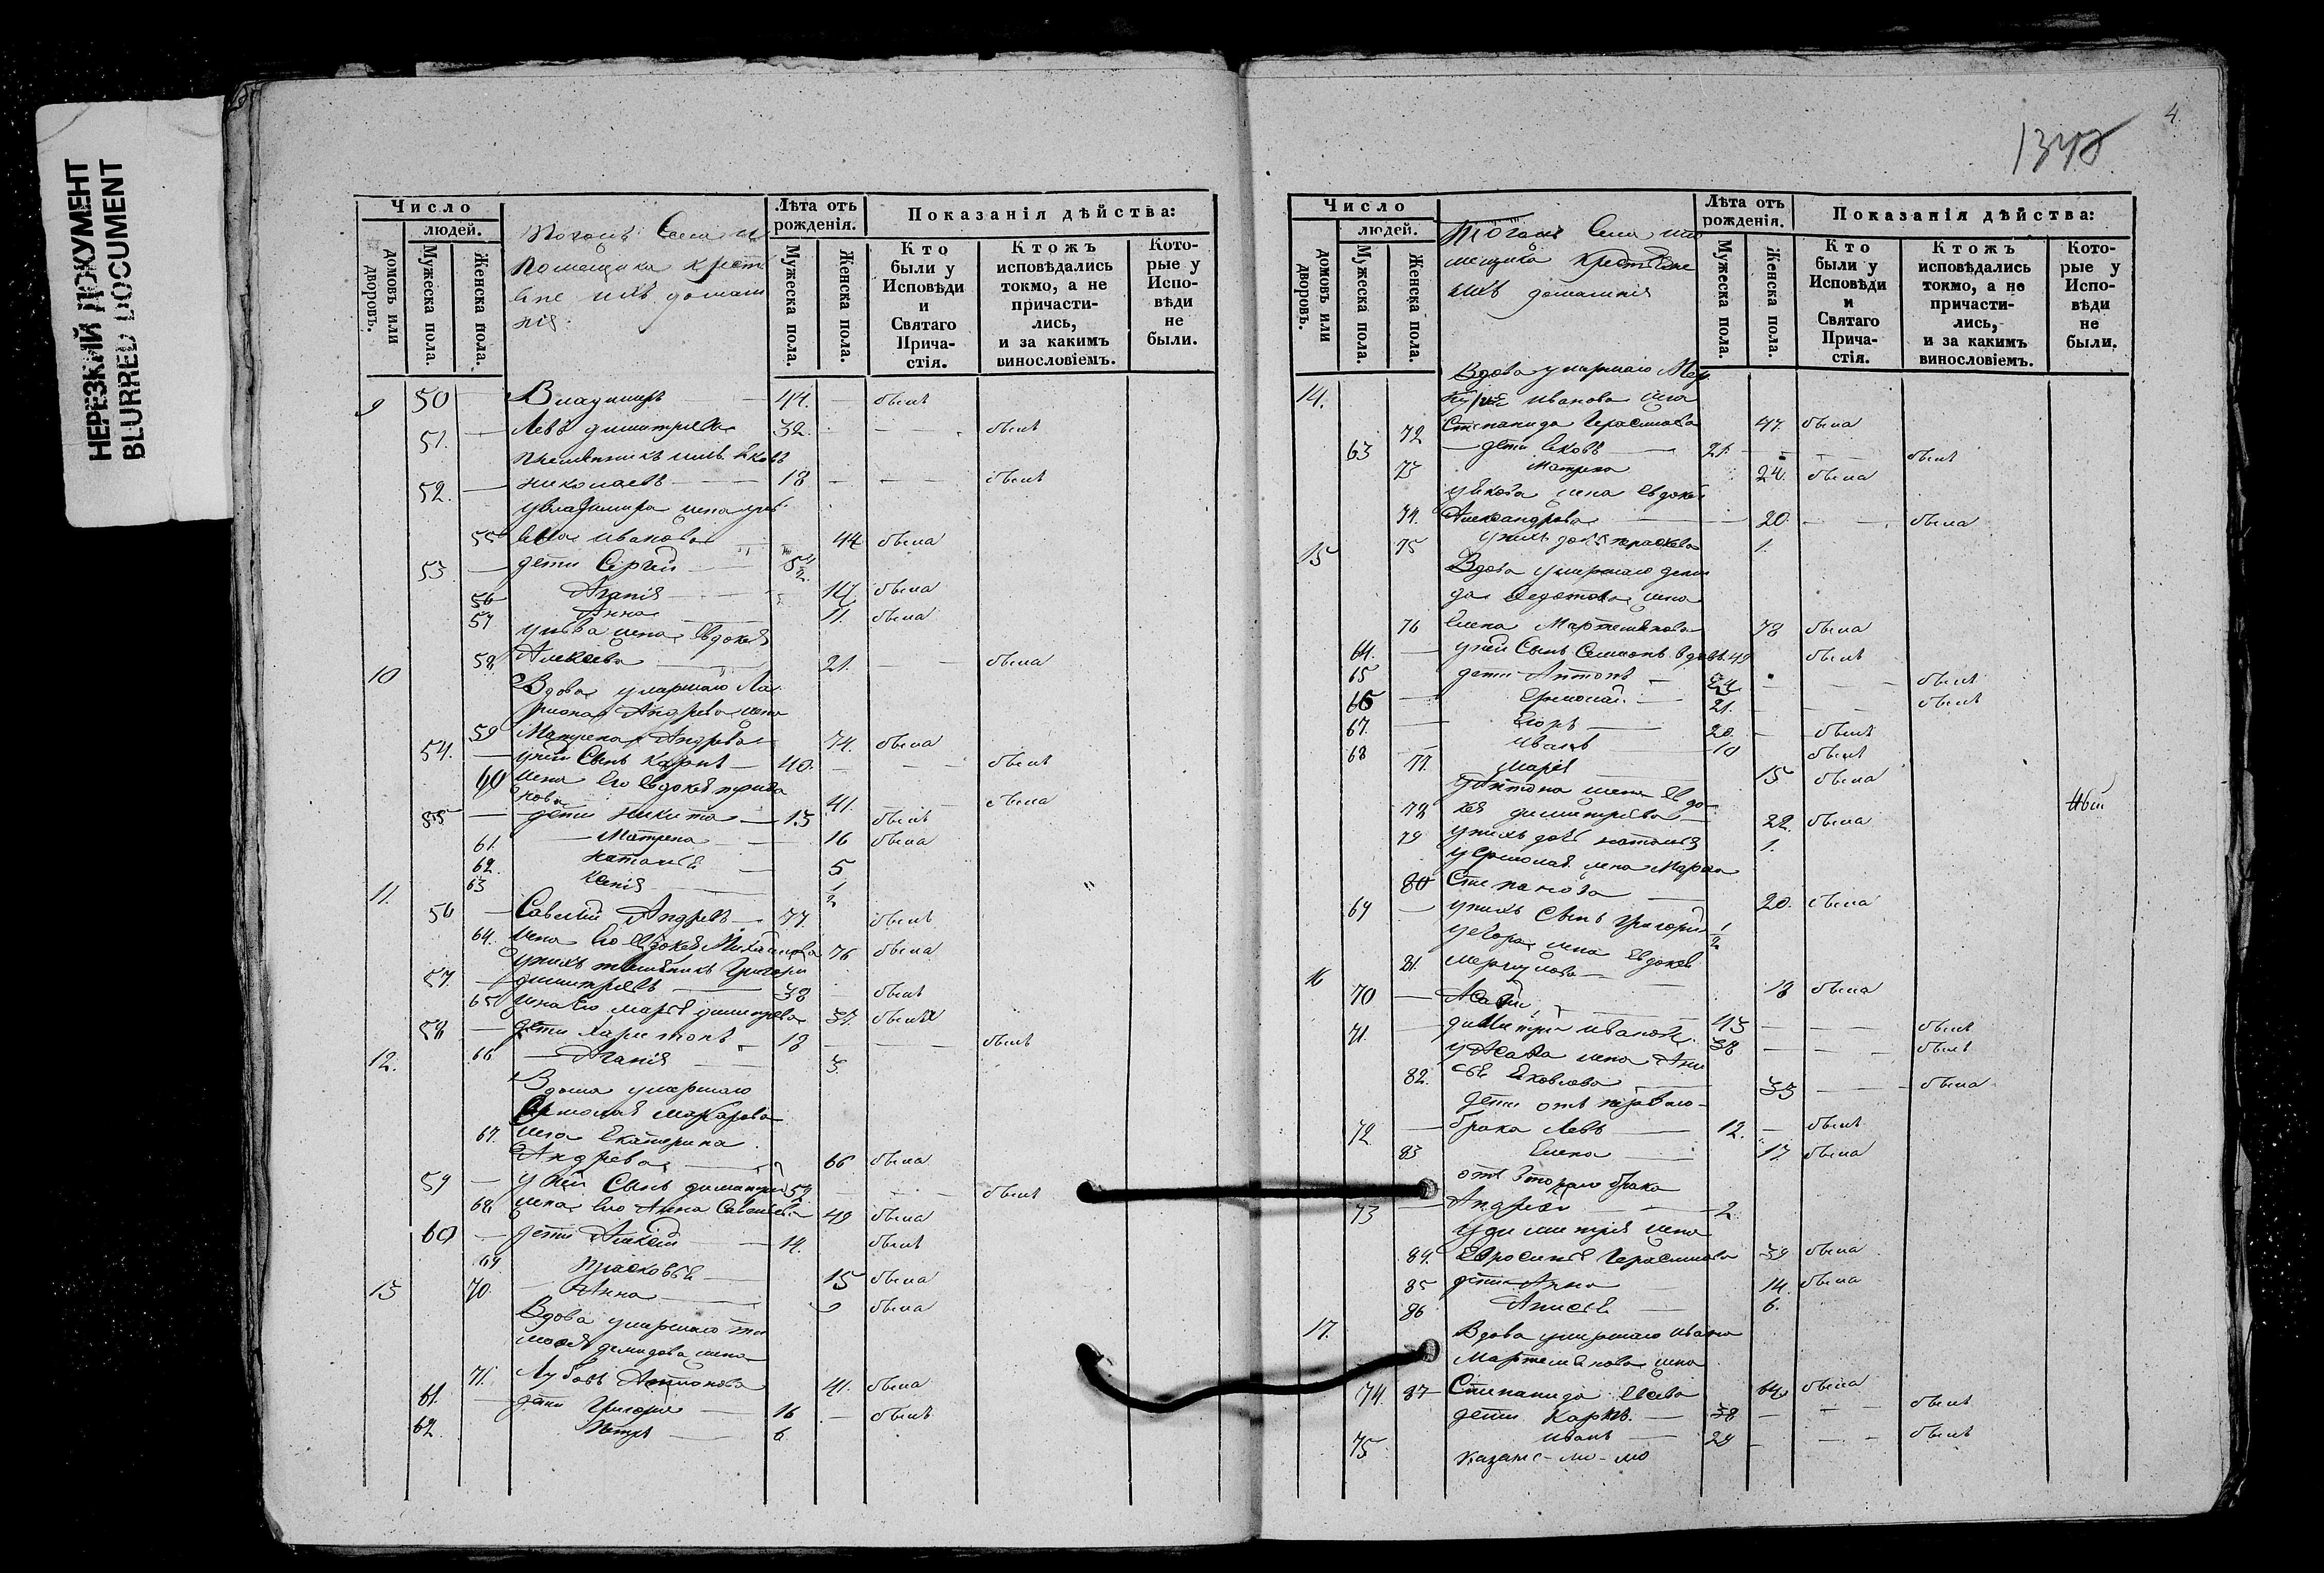 НЕРЕЗКИЙ ДОКУМЕНТ
BLURRED DOCUMENT
Число
людей.
домовъ или дворовъ.
Мужеска пола.
Женска пола.
Помещика крест
яне ихъ домаш
нія.
Лѣта отъ рожденія.
Мужеска пола.
Женска пола.
Показанія дѣйства:
Кто были у Исповѣди и Святаго Прича-стія.
Ктожъ исповѣдались токмо, а не причасти-лись, и за какимъ винословіемъ.
Кото-рые у Испо-вѣди не были.
9 50 — Владимиръ — 44. — былъ
51. — Левъ димитриевы 32. — былъ
племянникъ ихъ Яковъ
52. — николаевъ — 18 — былъ
у владимира жена
55 Иванова 44 была
53 — дети Сергей
56 Агапія 14 была
57 Анна 11. была
у льва жена Евдокея
58 Алексеева 21. — была
10 Вдова умершаго
Андреева жена
59 Матрена Андреева 74. была
54. — у ней Сынъ Карпъ — 40. — былъ
60 жена его Евдокея
41. — была
55 — дети Никита — 13 былъ
61. — Матрена — 16 была
62. Наталья — 5
63 Ксенія 1/2
11. 56 — Савелій Андреевъ — 77. былъ
64. жена его Евдокея Михайлова 76 была
у нихъ племянникъ Григорий
57. — димитриевъ — 38 — былъ
65 жена его марья димитриева 37. была
58 — дети харитонъ — 18 — былъ
12. 66 — Агапія 3.
Вдова умершаго
Ермолая макарова
67. жена Екатерина
Андреева 66 была
59 — у ней Сынъ димитрий 52. — былъ
68 жена его Анна Савельева 49 была
60 — дети Алексей 14. былъ
69 Прасковья — 15 была
13 70. — Анна — 9 была
Вдова умершаго ти
мофея демидова жена
71. Любовь Антонова 41. была
61. — дети Григорий — 16 — былъ
62. Петръ — 6
4.
Число
людей.
домовъ или дворовъ.
Мужеска пола.
Женска пола.
Тогожъ Села по
мещика крестьяне
ихъ домашнія
Лѣта отъ рожденія.
Мужеска пола.
Женска пола.
Показанія дѣйства:
Кто были у Исповѣди и Святаго Прича-стія.
Ктожъ исповѣдались токмо, а не причасти-лись, и за какимъ винословіемъ.
Кото-рые у Испо-вѣди не были.
14. Вдова умершаго
Иванова жена
72 Степанида Герасимова 47. была
63 — дети Яковъ — 21. — былъ
73 Матрена 24. была
у Якова жена Евдокея
74. Александрова 20. — была
75 у нихъ дочь прасковья 1.
15 Вдова умершаго
Федотова жена
76 Елена Мартемьянова 78 была
64. — у ней Сынъ Семионъ вдовъ 49 былъ
65 дети Антонъ — 24 — былъ
66 — Ермолай — 21. — былъ
67. — Егоръ — 20. — былъ
68 — Иванъ — 10 былъ
77. Марья 15 была
у Антона жена Евдо
78 кея димитриева — 22. была
79 у нихъ дочь наталья 1.
у ермолая жена Марфа
80 Степанова — 20. была
69 — у нихъ Сынъ Григорий 1/2
у егора жена Евдокея
81. меркулова — 18 была
16 70 — Исай 43 — былъ
71. — димитрий ивановы 38 — былъ
у Исая жена Ани
82. сья Яковлева 33 — была
дети отъ перваго
72 — брака Левъ — 12. — былъ
83 Елена 17 была
отъ втораго брака
73 — Андрей — 2
у димитрия жена
84. Евросинья Герасимова 39 была
85 дети Анна 14. была
86 Анисья 6.
17. Вдова умершаго ивана
Мартемьянова жена
87 Степанида 64 была
74. дети Карпъ. — 38 — былъ
75 иванъ — 29 — былъ